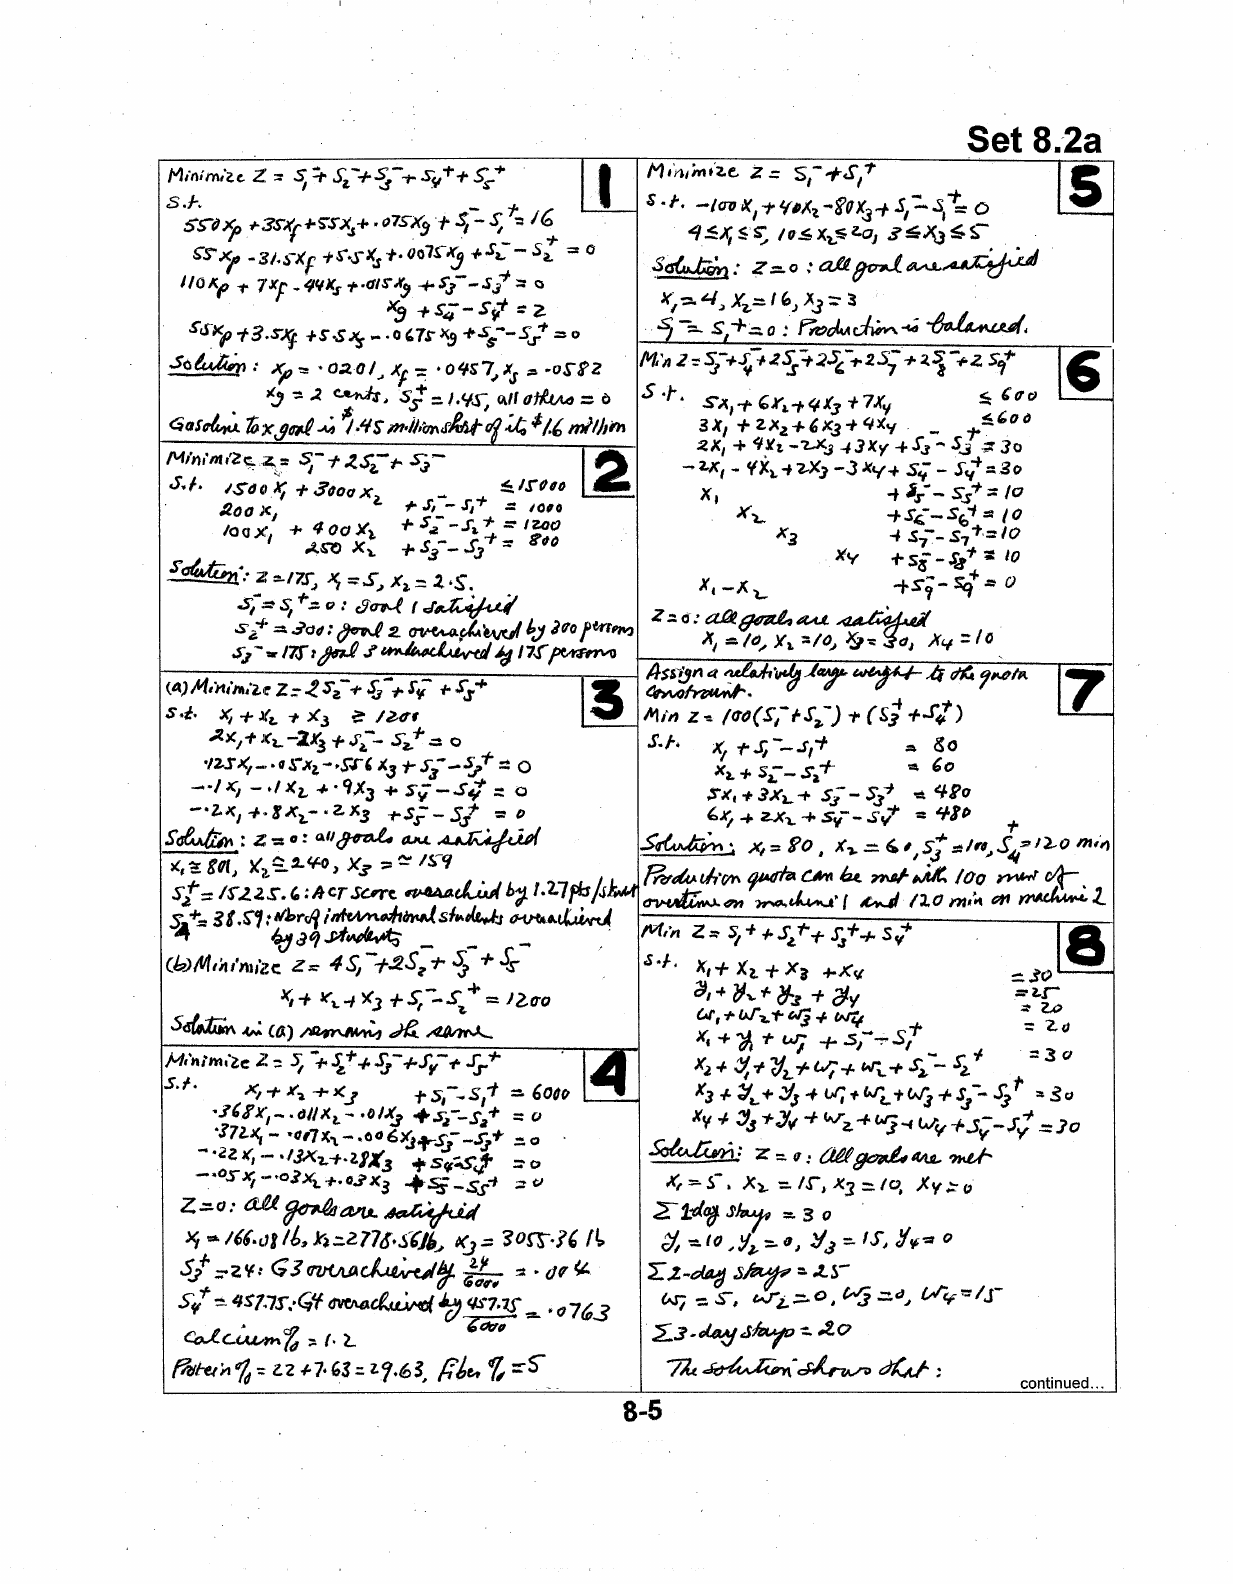 Set 8.2a
1
Minimize Z = S₁⁻ + S₂⁻ + S₃⁻ + S₄⁺ + S₅⁺
S.t.
550 xp + 35xf + 55xs + .075xg + S₁⁻ - S₁⁺ = 16
55 xp - 31.5xf + 5.5xs + .0075xg + S₂⁻ - S₂⁺ = 0
110xp + 7xf - 44xs + .015xg + S₃⁻ - S₃⁺ = 0
xg + S₄⁻ - S₄⁺ = 2
55xp + 3.5xf + 5.5xs - .0675xg + S₅⁻ - S₅⁺ = 0
Solution: xp = .0201, xf = .0457, xs = .0582
xg = 2 cents, S₅⁺ = 1.45, all others = 0
Gasoline tax goal is $1.45 million short of its $1.6 million
2
Minimize z = S₁⁻ + 2S₂⁻ + S₃⁻
S.t. 1500 x₁ + 3000 x₂ ≤ 15000
200 x₁ + S₁⁻ - S₁⁺ = 1000
100 x₁ + 400 x₂ + S₂⁻ - S₂⁺ = 1200
250 x₂ + S₃⁻ - S₃⁺ = 800
Solution: z = 175, x₁ = 5, x₂ = 2.5.
S₁⁻ = S₁⁺ = 0: goal 1 satisfied
S₂⁺ = 300: goal 2 overachieved by 300 persons
S₃⁻ = 175: goal 3 underachieved by 175 persons
3
(a) Minimize Z = 2S₂⁻ + S₃⁻ + S₄⁻ + S₅⁺
S.t. x₁ + x₂ + x₃ ≥ 1200
2x₁ + x₂ - 2x₃ + S₂⁻ - S₂⁺ = 0
.125x₁ - .05x₂ - .556x₃ + S₃⁻ - S₃⁺ = 0
-.1x₁ - .1x₂ + .9x₃ + S₄⁻ - S₄⁺ = 0
-.2x₁ + .8x₂ - .2x₃ + S₅⁻ - S₅⁺ = 0
Solution: Z = 0: all goals are satisfied
x₁ ≅ 801, x₂ ≅ 240, x₃ ≅ 159
S₂⁺ = 15225.6: ACT score overachieved by 1.27 pts/stunt
S₄⁺ = 38.59: Nbr of international students overachieved
by 39 students
(b) Minimize Z = 4S₁⁻ + 2S₂⁻ + S₃⁻ + S₅⁻
x₁ + x₂ + x₃ + S₁⁻ - S₂⁺ = 1200
Solution in (a) remains the same
4
Minimize Z = S₁⁻ + S₂⁺ + S₃⁻ + S₄⁻ + S₅⁺
S.t. x₁ + x₂ + x₃ + S₁⁻ - S₁⁺ = 6000
.368x₁ - .011x₂ - .01x₃ + S₂⁻ - S₂⁺ = 0
.372x₁ - .007x₂ - .006x₃ + S₃⁻ - S₃⁺ = 0
-.22x₁ - .13x₂ + .28x₃ + S₄⁻ - S₄⁺ = 0
-.05x₁ - .03x₂ + .03x₃ + S₅⁻ - S₅⁺ = 0
Z = 0: all goals are satisfied
x₁ = 166.08 lb, x₂ = 2778.56 lb, x₃ = 3055.36 lb
S₃⁺ = 24: G3 overachieved by 24/6000 = .004
S₄⁺ = 457.75: G4 overachieved by 457.75/6000 = .0763
Calcium % = 1.2
Protein % = 22 + 7.63 = 29.63, Fiber % = 5
5
Minimize z = S₁⁻ + S₁⁺
S.t. -100x₁ + 40x₂ - 80x₃ + S₁⁻ - S₁⁺ = 0
4 ≤ x₁ ≤ 5, 10 ≤ x₂ ≤ 20, 3 ≤ x₃ ≤ 5
Solution: Z = 0: all goal are satisfied
x₁ = 4, x₂ = 16, x₃ = 3
S₁⁻ = S₁⁺ = 0: Production is balanced.
6
Min Z = S₃⁻ + S₄⁻ + 2S₅⁻ + 2S₆⁻ + 2S₇⁻ + 2S₈⁻ + 2S₉⁺
S.t. 5x₁ + 6x₂ + 4x₃ + 7x₄ ≤ 600
3x₁ + 2x₂ + 6x₃ + 4x₄ ≤ 600
2x₁ + 4x₂ - 2x₃ + 3x₄ + S₃⁻ - S₃⁺ = 30
-2x₁ - 4x₂ + 2x₃ - 3x₄ + S₄⁻ - S₄⁺ = 30
x₁ + S₅⁻ - S₅⁺ = 10
x₂ + S₆⁻ - S₆⁺ = 10
x₃ + S₇⁻ - S₇⁺ = 10
x₄ + S₈⁻ - S₈⁺ = 10
x₁ - x₂ + S₉⁻ - S₉⁺ = 0
Z = 0: all goals are satisfied
x₁ = 10, x₂ = 10, x₃ = 30, x₄ = 10
7
Assign a relatively large weight to the quota
constraint.
Min Z = 100(S₁⁻ + S₂⁻) + (S₃⁺ + S₄⁺)
S.t. x₁ + S₁⁻ - S₁⁺ = 80
x₂ + S₂⁻ - S₂⁺ = 60
5x₁ + 3x₂ + S₃⁻ - S₃⁺ = 480
6x₁ + 2x₂ + S₄⁻ - S₄⁺ = 480
Solution: x₁ = 80, x₂ = 60, S₃⁺ = 100, S₄⁺ = 120 min
Production quota can be met with 100 min of
overtime on machine 1 and 120 min on machine 2
8
Min Z = S₁⁺ + S₂⁺ + S₃⁺ + S₄⁺
S.t. x₁ + x₂ + x₃ + x₄ = 30
y₁ + y₂ + y₃ + y₄ = 25
w₁ + w₂ + w₃ + w₄ = 20
x₁ + y₁ + w₁ + S₁⁻ - S₁⁺ = 20
x₂ + y₁ + y₂ + w₁ + w₂ + S₂⁻ - S₂⁺ = 30
x₃ + y₂ + y₃ + w₁ + w₂ + w₃ + S₃⁻ - S₃⁺ = 30
x₄ + y₃ + y₄ + w₂ + w₃ + w₄ + S₄⁻ - S₄⁺ = 30
Solution: Z = 0: All goals are met
x₁ = 5, x₂ = 15, x₃ = 10, x₄ = 0
Σ 1-day stays = 30
y₁ = 10, y₂ = 0, y₃ = 15, y₄ = 0
Σ 2-day stays = 25
w₁ = 5, w₂ = 0, w₃ = 0, w₄ = 15
Σ 3-day stays = 20
The solution shows that:
continued...
8-5